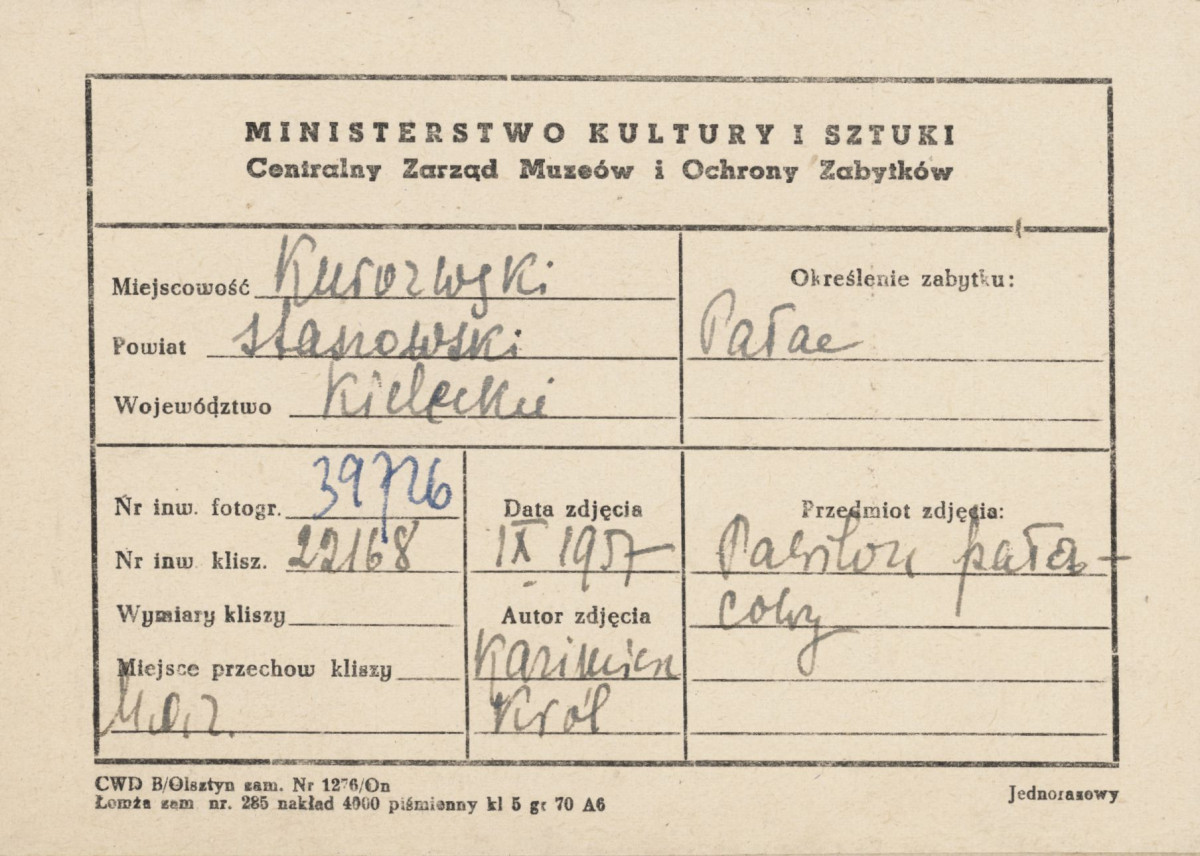 MINISTERSTWO KULTURY I SZTUKI
Centralny Zarząd Muzeów i Ochrony Zabytków
Miejscowość Kurozwęki
Powiat staszowski
Województwo Kieleckie
Określenie zabytku:
Pałac
Nr inw. fotogr. 39726
Nr inw klisz. 22168
Wymiary kliszy
Miejsce przechow kliszy
M.O.Z.
Data zdjęcia
IX 1957
Autor zdjęcia
Kazimierz
Król
Przedmiot zdjęcia:
Pawilon pała-
cowy
CWD B/Olsztyn zam. Nr 1276/On
Łomża zam nr. 285 nakład 4000 piśmienny kl 5 gr 70 A6
Jednorazowy